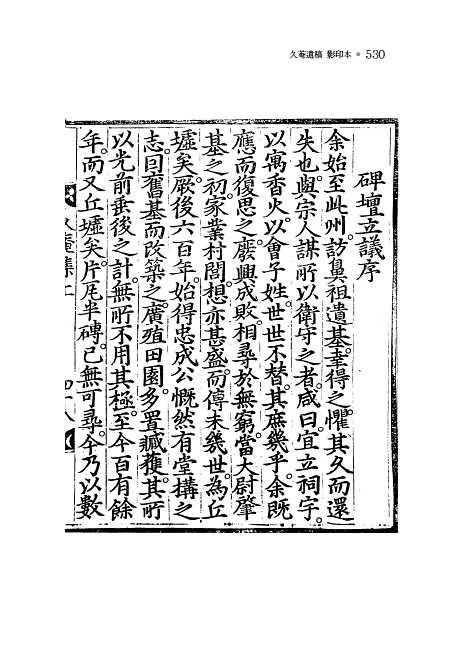 久菴遺稿 影印本 • 530
碑壇立議序
余始至此州。訪鼻祖遺基。幸得之。懼其久而還
失也。與宗人謀所以衛守之者。咸曰。宜立祠宇。
以寓香火。以會子姓。世世不替。其庶幾乎。余旣
應而復思之。廢興成敗。相尋於無窮。當大尉肇
基之初。家業村閭。想亦甚盛。而傳未幾世。為丘
墟矣。厥後六百年。始得忠成公慨然有堂搆之
志。因舊基而改築之。廣殖田園。多置臧獲。其所
以光前垂後之計。無所不用其極。至今百有餘
年。而又丘墟矣。片瓦半磚。已無可尋。今乃以數